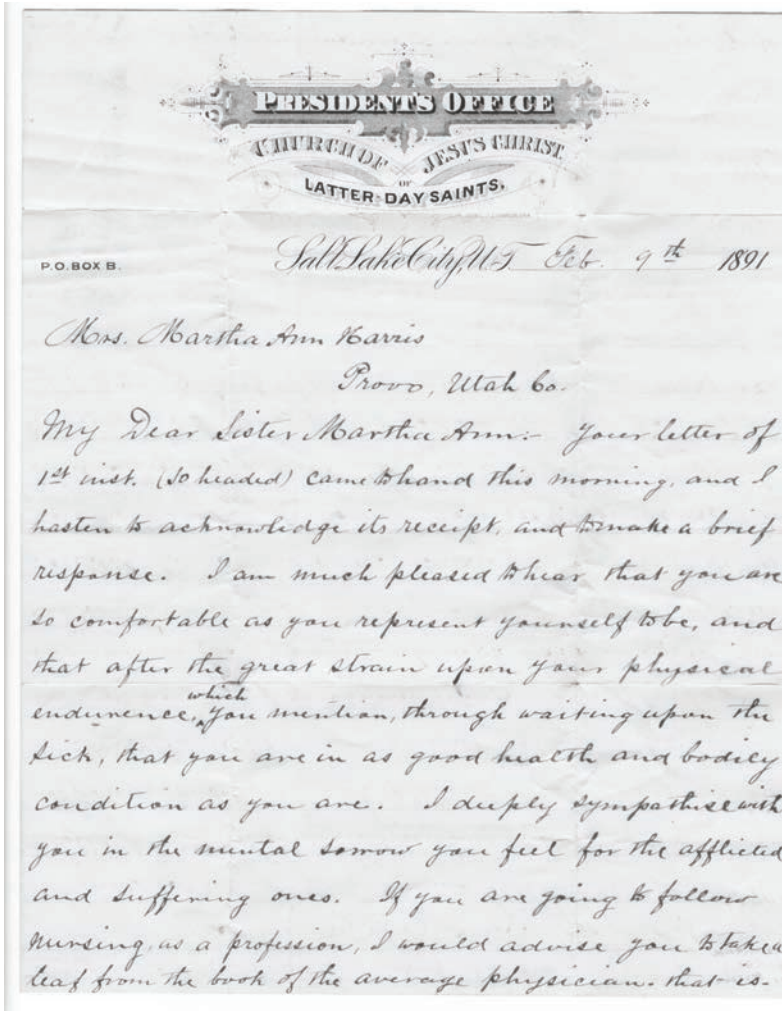 PRESIDENT'S OFFICE
CHURCH OF JESUS CHRIST
OF
LATTER-DAY SAINTS.
P.O. BOX B. Salt Lake City, U.T. Feb. 9th 1891
Mrs. Martha Ann Harris
Provo, Utah Co.
My Dear Sister Martha Ann:- Your letter of
1st inst. (so headed) came to hand this morning, and I
hasten to acknowledge its receipt, and to make a brief
response. I am much pleased to hear that you are
so comfortable as you represent yourself to be, and
that after the great strain upon your physical
endurence, which you mention, through waiting upon the
sick, that you are in as good health and bodily
condition as you are. I deeply sympathise with
you in the mental sorrow you feel for the afflicted
and suffering ones. If you are going to follow
nursing as a profession, I would advise you to take a
leaf from the book of the average physician. that is-